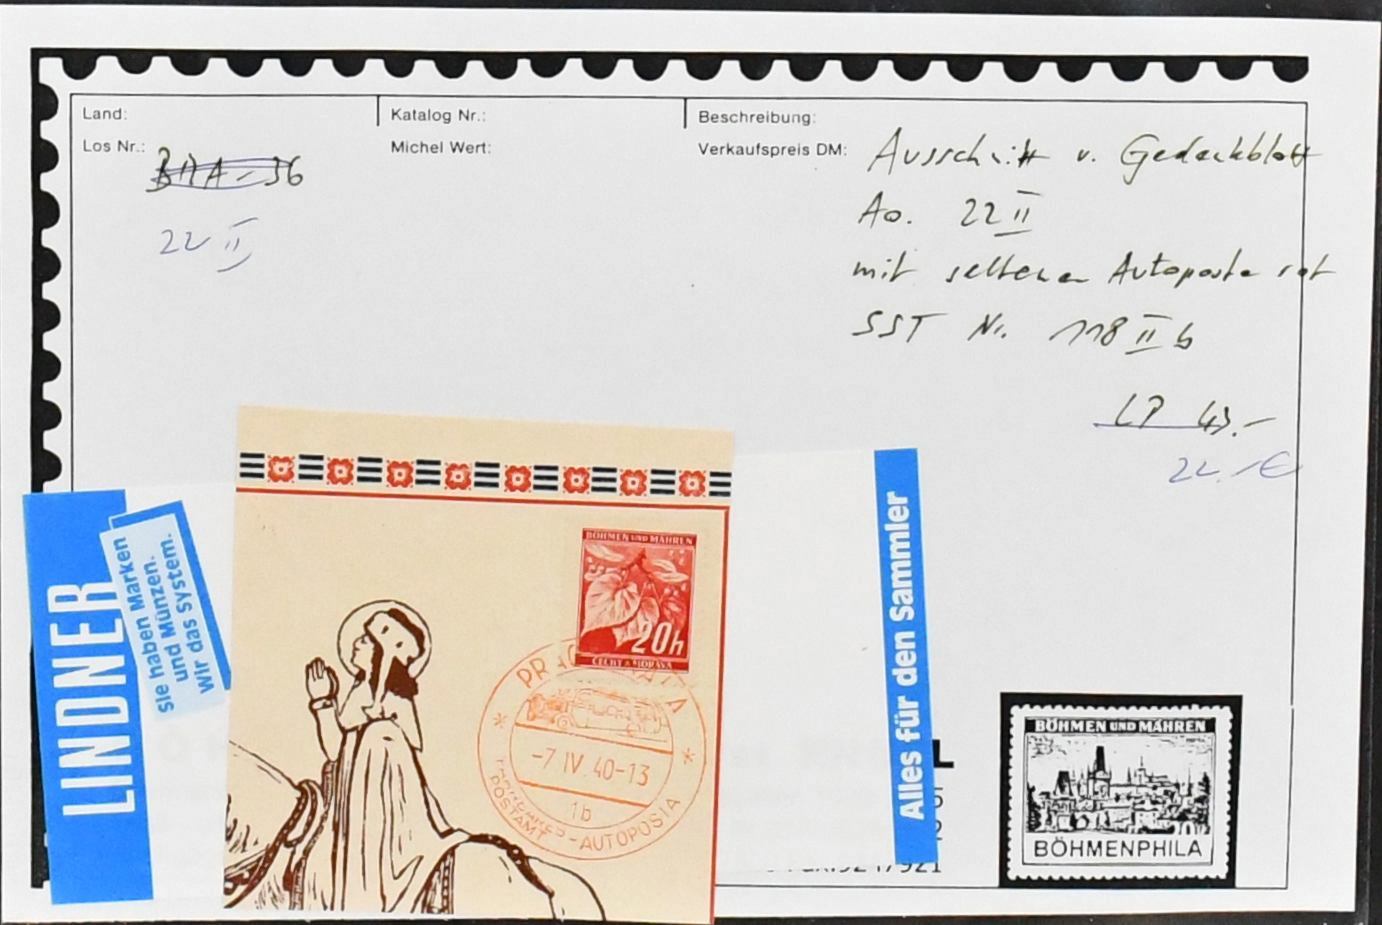 Land:
Katalog Nr.:
Beschreibung:
Los Nr.:
Michel Wert:
Verkaufspreis DM:
Ausschnitt v. Gedenkblatt
Ao. 22 II
mit seltenen Autoposta rot
SST Nr. 118 II b
LP 43.-
22.-€
22 II
LINDNER
Sie haben Marken
und Münzen.
Wir das System.
BÖHMEN UND MÄHREN
20h
ČECHY A MORAVA
-7 IV. 40-13
1b
POSTAMT - AUTOPOSTA
Alles für den Sammler
BÖHMEN UND MÄHREN
BÖHMENPHILA